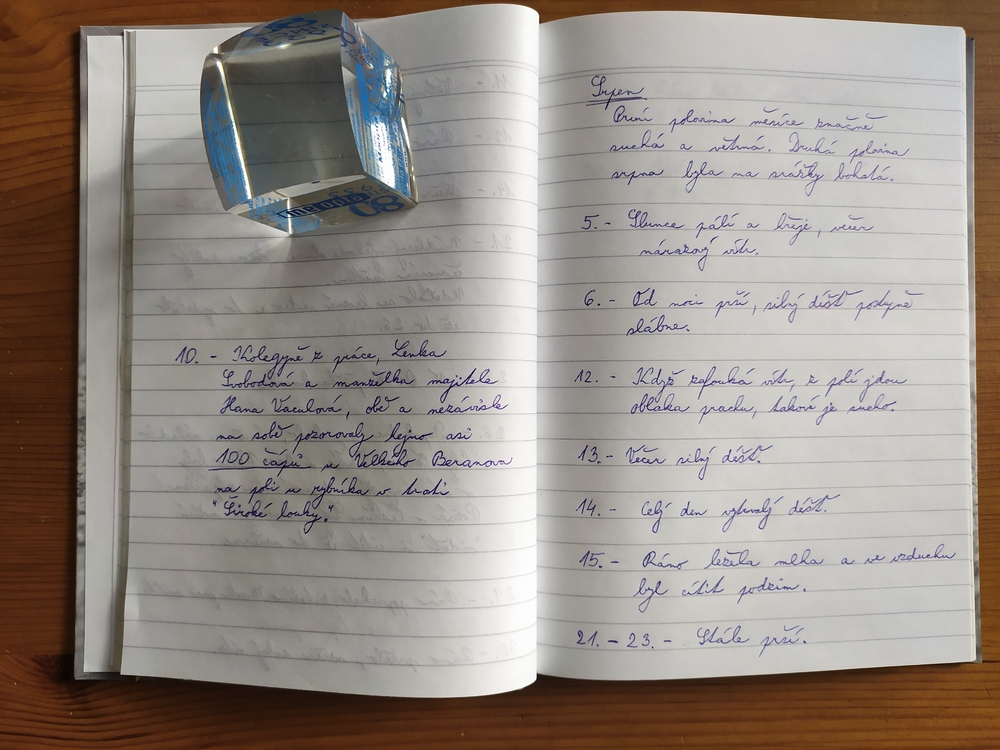 10. - Kolegyně z práce, Lenka
Svobodová a manželka majitele
Hana Vaculová, obě a nezávisle
na sobě pozorovaly hejno asi
100 čápů u Velkého Beranova
na poli u rybníka v trati
"Široké louky."
Srpen
První polovina měsíce značně
suchá a větrná. Druhá polovina
srpna byla na srážky bohatá.
5. - Slunce pálí a hřeje, večer
nárazový vítr.
6. - Od noci prší, silný déšť postupně
slábne.
12. - Když zafouká vítr, z polí jdou
oblaka prachu, takové je sucho.
13. - Večer silný déšť.
14. - Celý den vytrvalý déšť.
15. - Ráno ležela mlha a ve vzduchu
byl cítit podzim.
21. - 23. - Stále prší.